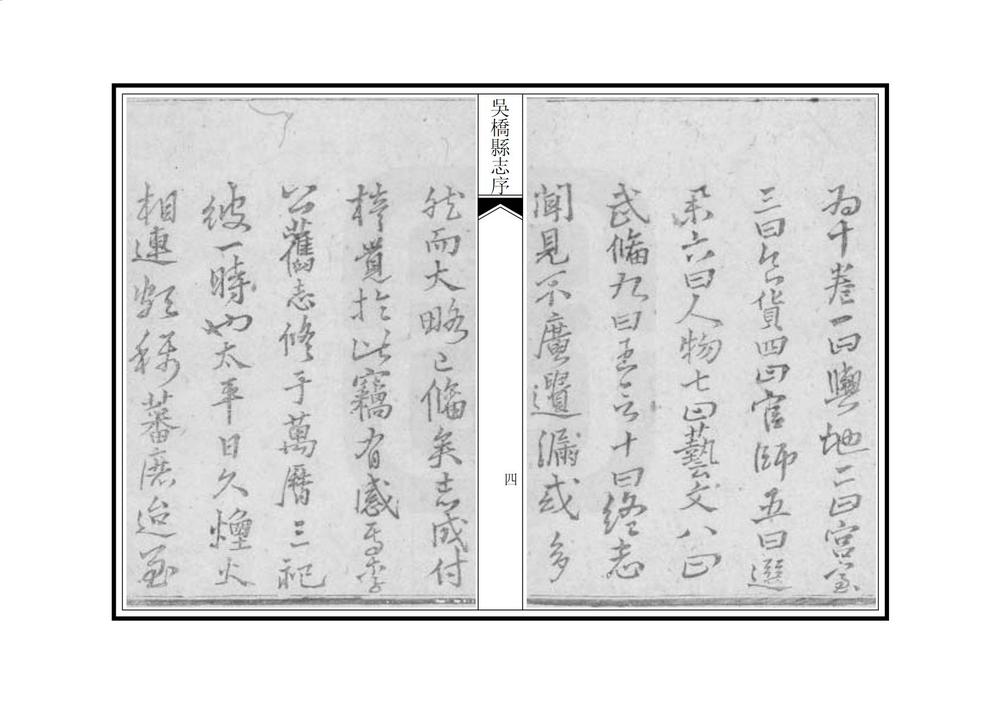 為十卷一曰輿地二曰宮室
三曰食貨四曰官師五曰選
舉六曰人物七曰藝文八曰
武備九曰五行十曰終志
聞見不廣遺漏或多
吳橋縣志序
四
然而大略已備矣志成付
梓覺於此竊有感焉李
公舊志修于萬曆三祀
彼一時也太平日久煙火
相連頗稱蕃庶迨至